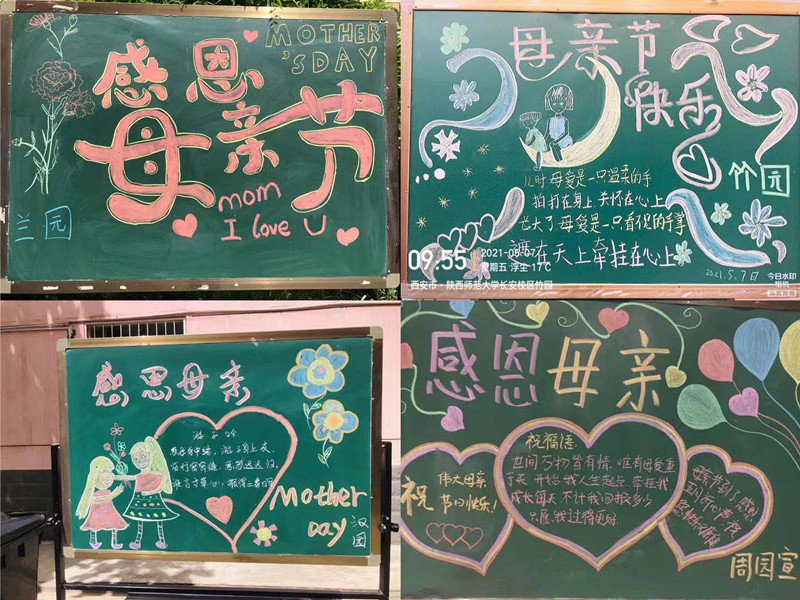 MOTHER
'S DAY
感恩
母亲节
mom
I love U
兰园
母亲节
快乐
竹园
儿时母爱是一只温柔的手
拍打在身上 关怀在心上
长大了母爱是一只看似的手掌
在天上牵挂在心上
2021.5.7日
09:55
2021-05-07
星期五 浮尘 17℃
西安市·陕西师范大学长安校区竹园
今日水印
相机
感恩母亲
游子吟
慈母手中线,游子身上衣.
临行密密缝,意恐迟迟归.
谁言寸草心,报得三春晖.
Mother
Day
汉园
感恩母亲
祝
伟大母亲
节日快乐!
祝福语:
世间万物皆有情.唯有母爱重
于天 开始我人生起点 牵挂我
成长每天 不计我回报多少
只愿我过得更好.
母亲节到了
周园宣